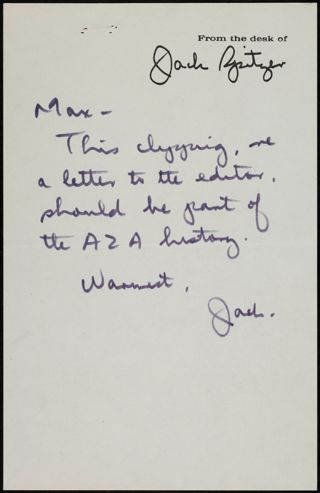 From the desk of
Jack Spitzer
Max -
This clipping, re
a letter to the editor,
should be part of
the AZA history.
Warmest,
Jack.